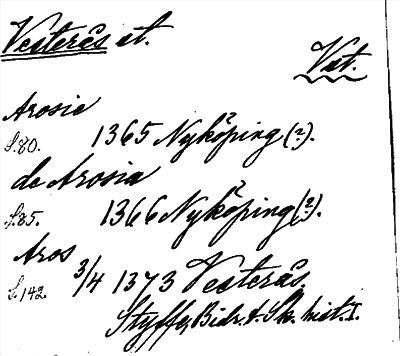 Vesterås st.
Vst.
Arosie
S. 80. 1365 Nyköping (?).
de Arosia
S. 85. 1366 Nyköping (?).
Aros
S. 142. 3/4 1373 Vesterås.
Styffe, Bidr. t. Sk. hist. I.